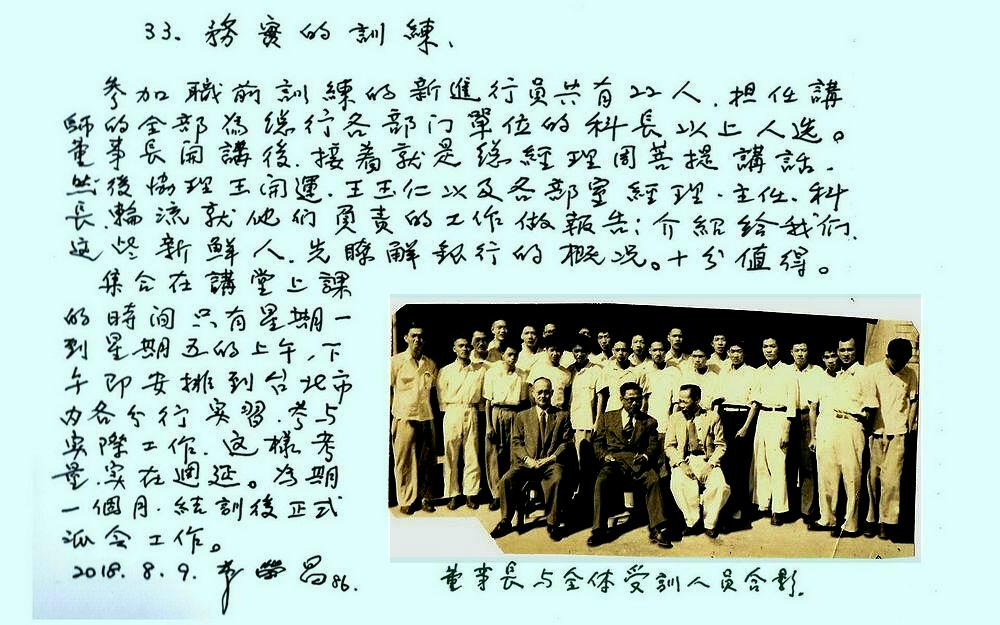 33. 務實的訓練、
參加職前訓練的新進行員共有22人.担任講
師的全部為總行各部门單位的科長以上人选。
董事長開講後.接着就是總經理周菩提講話.
然後協理王開運.王玉仁以及各部室經理.主任.科
長.輪流就他们負責的工作做報告;介紹給我们
这些新鮮人.先瞭解銀行的概况。十分值得。
集合在講堂上課
的時间只有星期一
到星期五的上午,下
午即安排到台北市
内各分行实習.参与
实際工作.这樣考
量.实在週延。為期
一個月.結訓後正式
派令工作。
2018.8.9. 李榮昌86.
董事長与全体受訓人員合影.